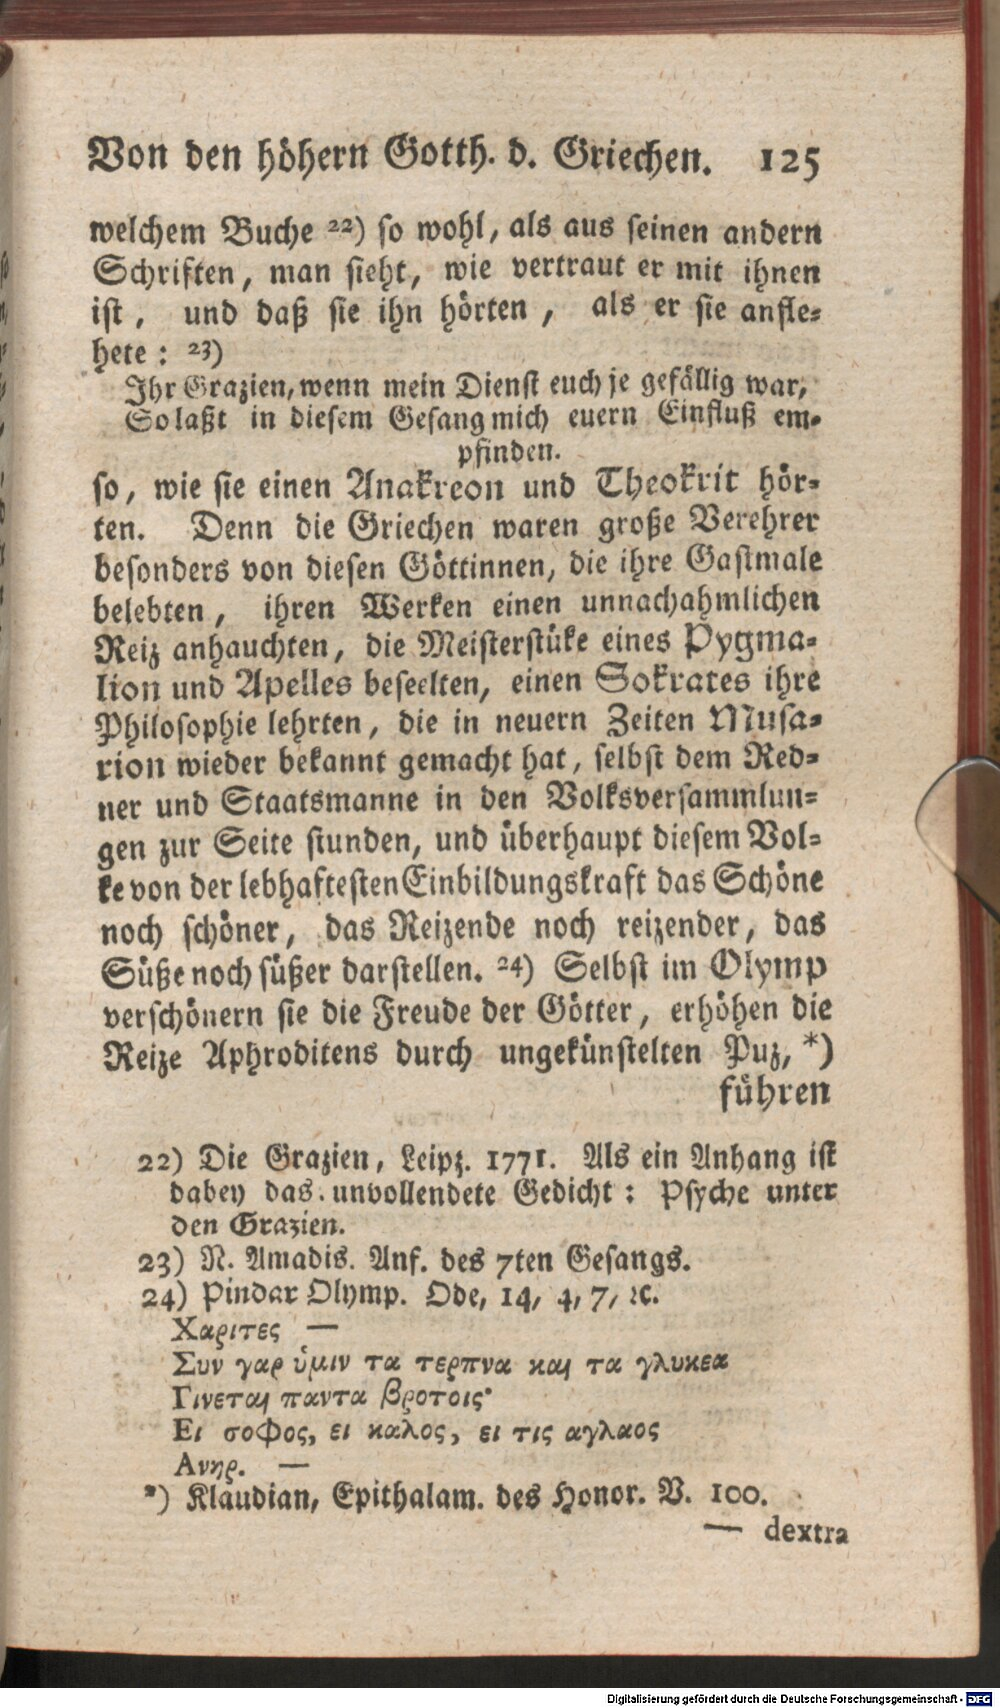 Von den höhern Gotth. d. Griechen. 125
welchem Buche 22) so wohl, als aus seinen andern
Schriften, man sieht, wie vertraut er mit ihnen
ist, und daß sie ihn hörten, als er sie anfle-
hete: 23)
Ihr Grazien, wenn mein Dienst euch je gefällig war,
So laßt in diesem Gesang mich euern Einfluß em-
pfinden.
so, wie sie einen Anakreon und Theokrit hör-
ten. Denn die Griechen waren große Verehrer
besonders von diesen Göttinnen, die ihre Gastmale
belebten, ihren Werken einen unnachahmlichen
Reiz anhauchten, die Meisterstüke eines Pygma-
lion und Apelles beseelten, einen Sokrates ihre
Philosophie lehrten, die in neuern Zeiten Musa-
rion wieder bekannt gemacht hat, selbst dem Red-
ner und Staatsmanne in den Volksversammlun-
gen zur Seite stunden, und überhaupt diesem Vol-
ke von der lebhaftesten Einbildungskraft das Schöne
noch schöner, das Reizende noch reizender, das
Süße noch süßer darstellen. 24) Selbst im Olymp
verschönern sie die Freude der Götter, erhöhen die
Reize Aphroditens durch ungekünstelten Puz, *)
führen
22) Die Grazien, Leipz. 1771. Als ein Anhang ist
dabey das unvollendete Gedicht: Psyche unter
den Grazien.
23) N. Amadis. Anf. des 7ten Gesangs.
24) Pindar Olymp. Ode, 14, 4, 7, ꝛc.
Χαριτες —
Συν γαρ ὑμιν τα τερπνα και τα γλυκεα
Γινεται παντα βροτοις·
Ει σοφος, ει καλος, ει τις αγλαος
Ανηρ. —
*) Klaudian, Epithalam. des Honor. V. 100.
— dextra
Digitalisierung gefördert durch die Deutsche Forschungsgemeinschaft - DFG